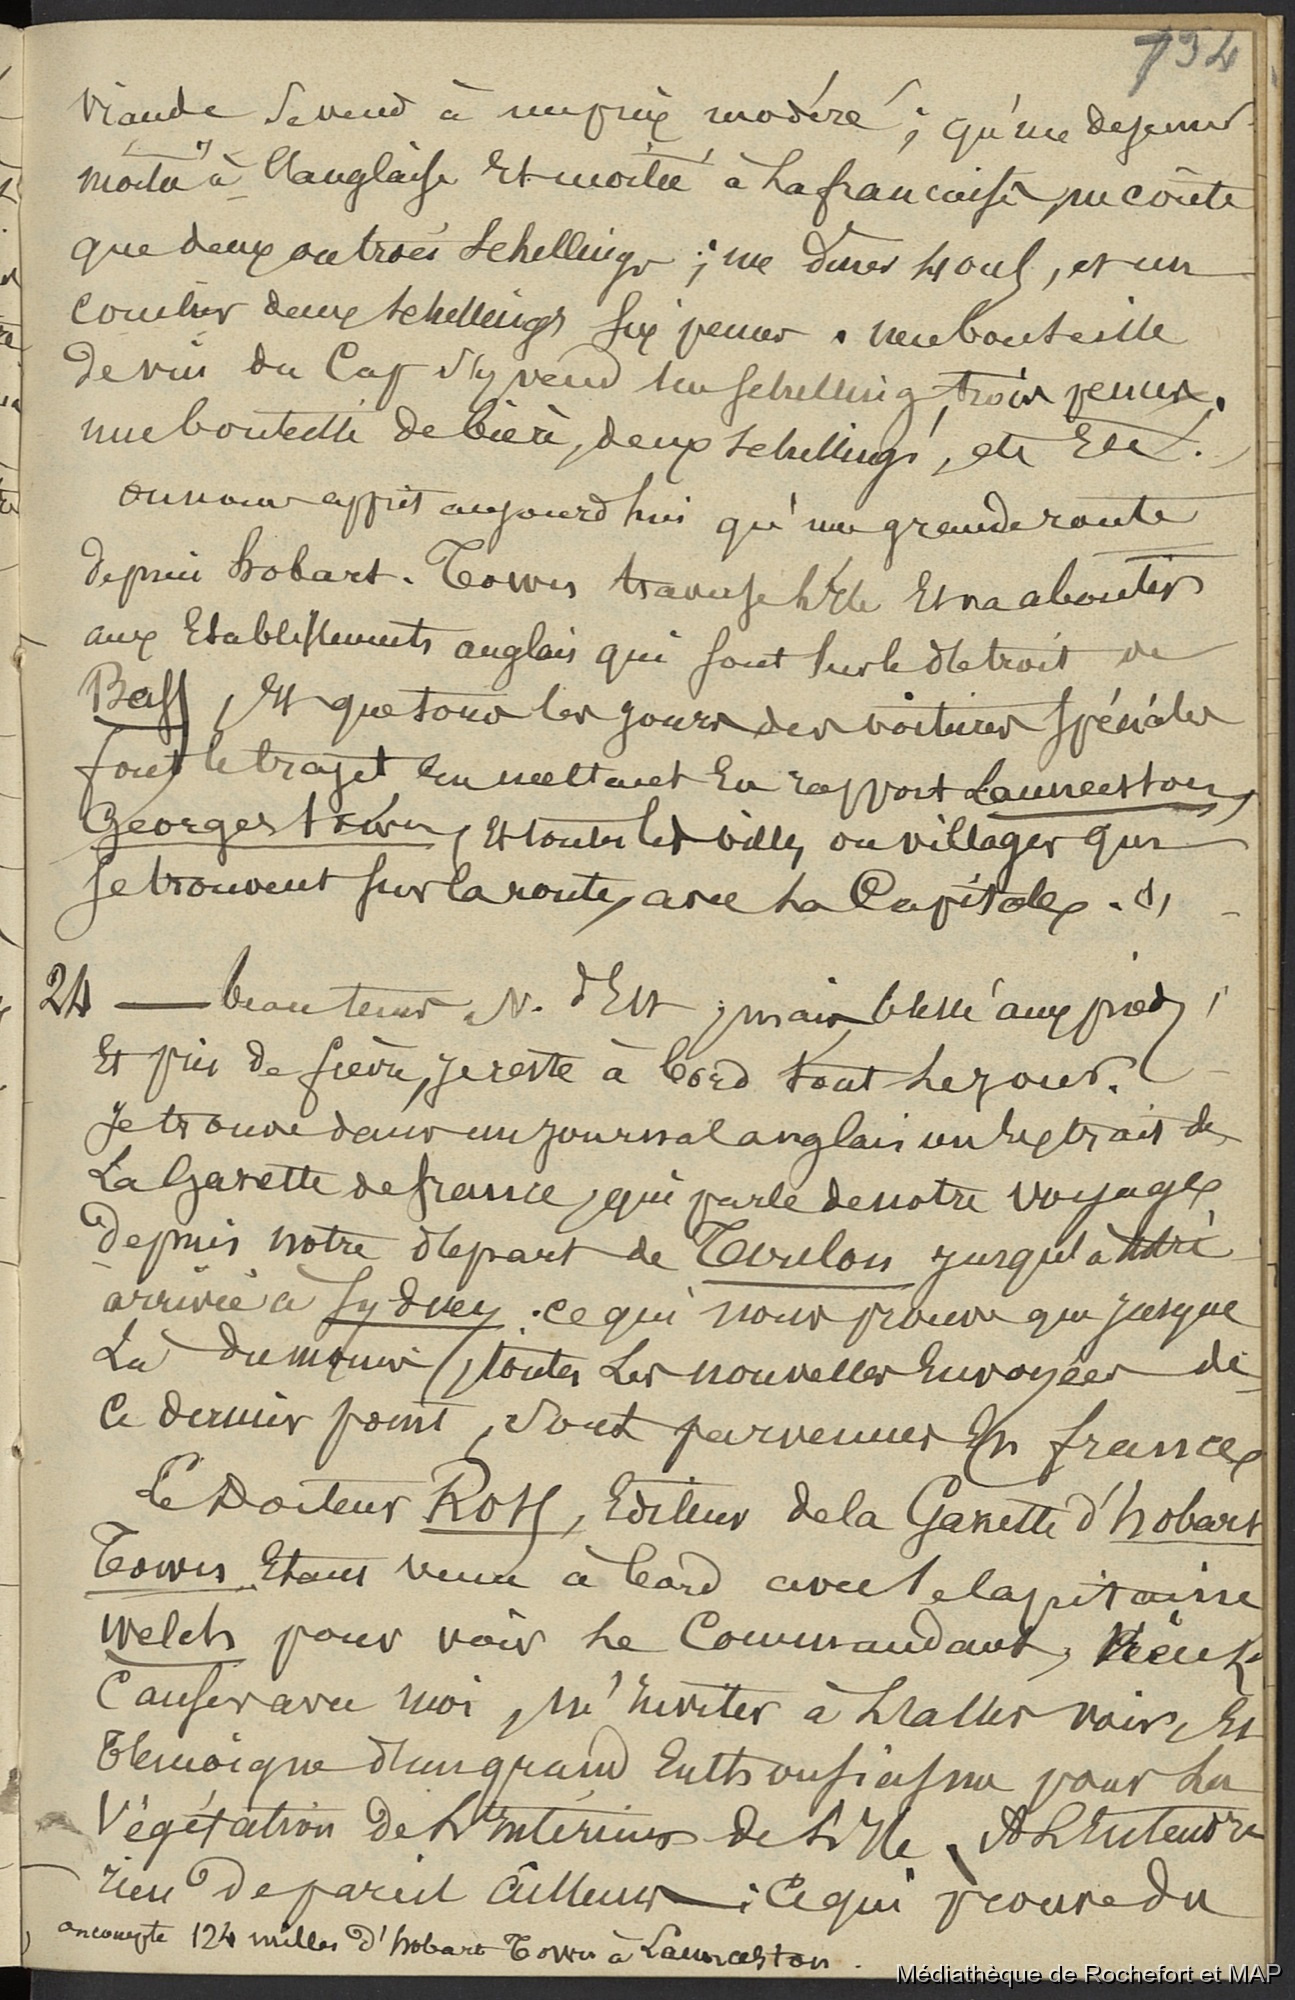 794
viande se vend à un prix modéré ; qu'un dejeuner
moitié à l'anglaise et moitié à la française, ne coûte
que deux ou trois schellings ; un diner  , et un
coucher deux schellings six pences . une bouteille
de vin du Cap s'y vend un schelling, trois pences.
une bouteille de bière, deux schellings, etc Etc.
on nous apprit aujourd'hui qu'une grande route
depuis hobart-Town traverse l'Ile Et va aboutir
aux Etablissements anglais qui sont sur le détroit de
Bass, Et que tous les jours des voitures spéciales
font le trajet en mettant En rapport Launceston,
Georges town, Et toutes les villes ou villages qui
se trouvent sur la route, avec la Capitale.
24 — beau temps N. d'Est ; mais, blessé aux pieds,
Et pris de fièvre, je reste à bord tout le jour.
Je trouve dans un journal anglais un Extrait de
La Gazette de france, qui parle de notre voyage
depuis notre départ de Toulon jusqu'à notre
arrivée à Sydney. ce qui nous prouve que jusque
Là du moins, toutes Les nouvelles Envoyées de
ce dernier point, sont parvenues En france
Le Docteur Ross, Editeur de la Gazette d'hobart
Town Etant venu à bord avec le capitaine
Welch pour voir le Commandant, vient
causer avec moi, m'inviter à L'aller voir, Et
témoigne d'un grand Enthousiasme pour la
végétation de L'intérieur de L'Ile. A L'Entendre
rien de pareil ailleurs — ; ce qui prouve du
on compte 124 milles d'hobart Town à Launceston.
Médiathèque de Rochefort et MAP